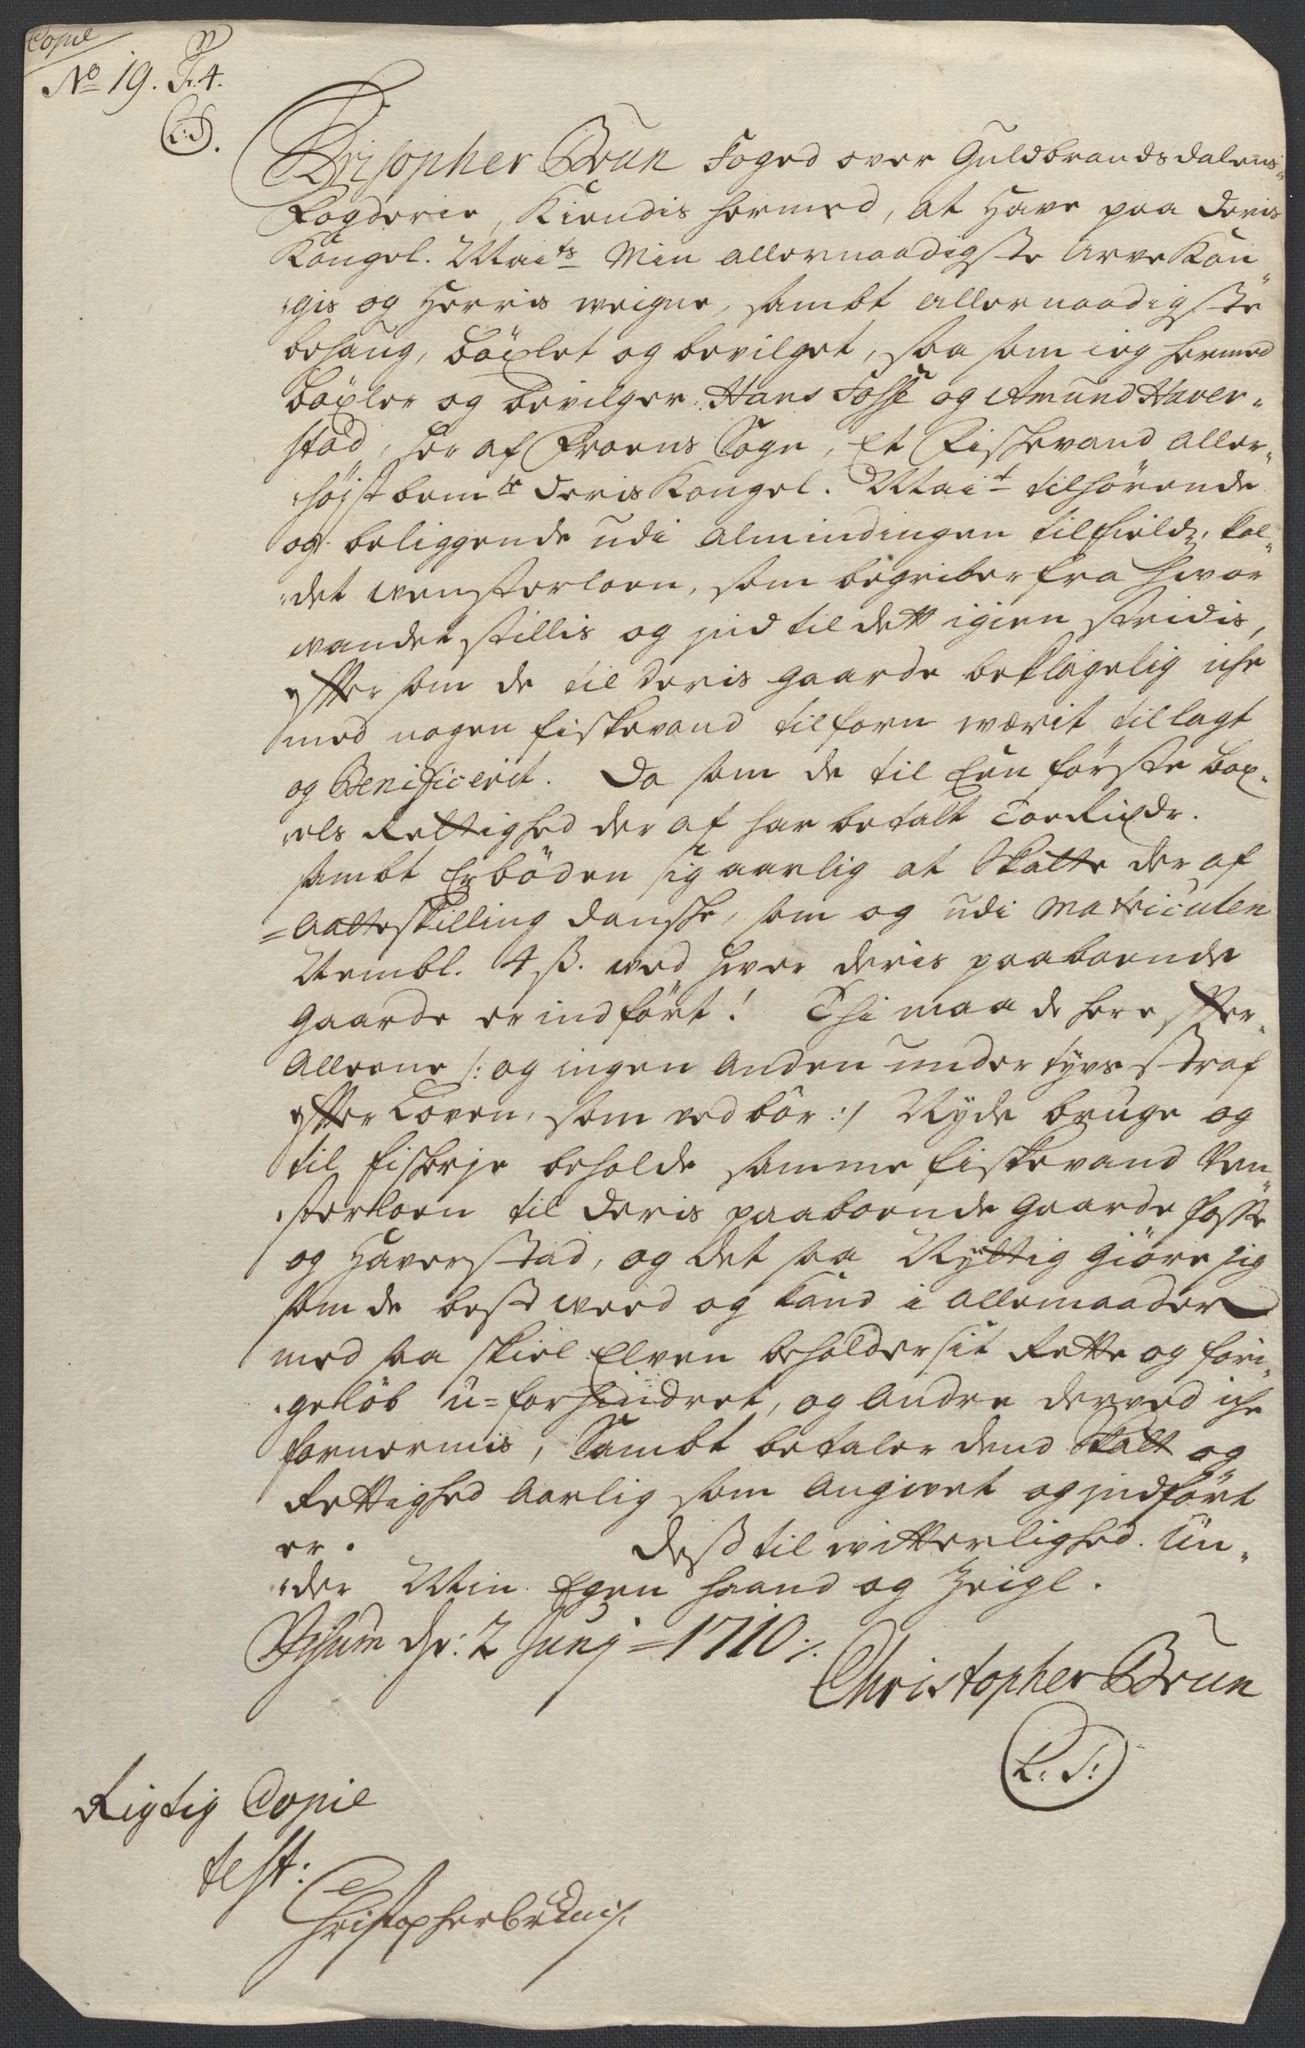 Copie
No 19. F. 4.
L: S.
Christopher Brun Foged over Guldbrandsdalens
Fogderie, Kiendis hermed, at Have paa Deris
Kongel. Maits Min allernaadigste Arve Kon„
„gis og Herris weigne, sambt allernaadigste
behaug, böxlet og bevilget, saa som ieg hermed
böxler og bevilger Hans Fosse og Amund Haver„
stad, her af Froens Sogn, Et Fischevand aller„
„höjst bemte Deris Kongel. Mait tilhörende
og beliggende udi Almindingen tilfields, kal„
„det wensterloen, som begriber fra hvor
wandet stillis og ind til dett igien stridis,
effter som de til deris gaarde beklagelig iche
med nogen fiskevand tilforn wærit tillagt
og Benificerit. Da som de til Een förste böx„
„els Rettighed der af har betalt Toe Rixdr.
sambt Erböden sig aarlig at Skatte der af
=Aatteskilling dansche, som og udi Matriculen
Nembl. 4 ß. ved hver deris paaboende
gaarde er indfört! Thi maa de her effter„
Alleene /: og ingen anden under tyvs straf
effter Loven, som ved bör :/ Nyde bruge og
til fischerje beholde samme fiskevand Ven„
„sterloen til deris paaboende gaarde Fosse
og Haverstad, og det saa Nyttig giöre sig
som de best weed og kand i allemaader
med saa skiel Elven beholder sit Rette og fori„
„geløb u=forhindret, og andre derved iche
fornermis, Sambt betaler dend Skatt og
Rettighed Aarlig som angivet og indfört
er. Dess til witterlighed. Un„
„der Min Egen haand og Zeigl.
Iisum dn: 2 Junj = 1710 ./.
Christopher Brun
L: S:
Rigtig Copie
test:
Christopher